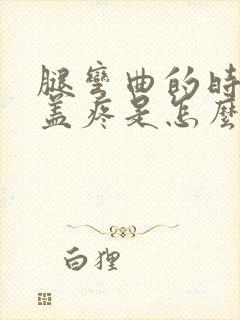 腿彎曲的時
蓋疼是怎麼
白狸